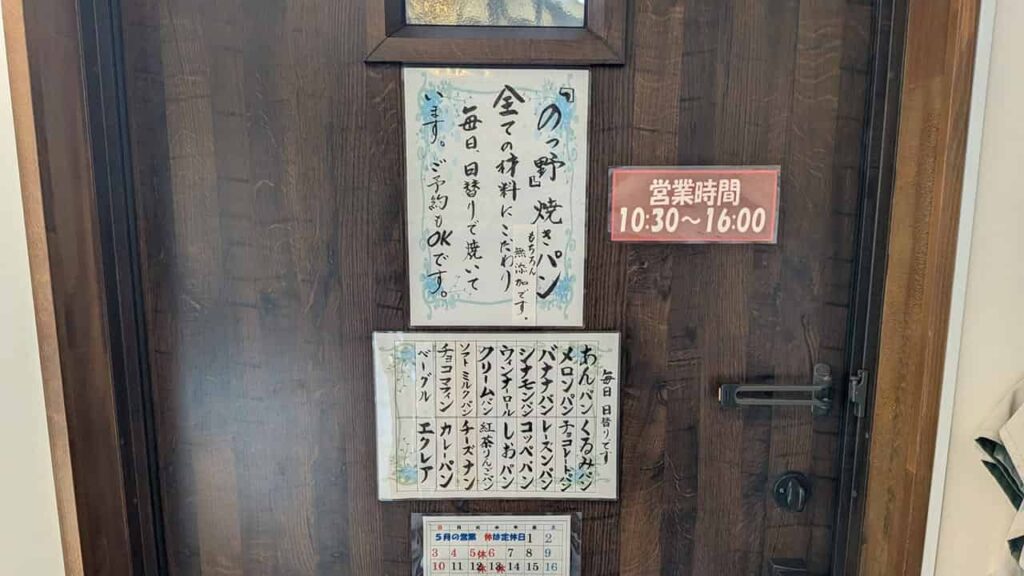 『のっ野』焼きパン
もちろん
無添加です。
全ての材料にこだわり
毎日、日替りで焼いて
います。ご予約もOKです。
営業時間
10:30～16:00
毎日 日替りです
あんパン くるみパン
メロンパン チョコレートパン
バナナパン レーズンパン
シナモンパン コッペパン
ウィンナーロール しおパン
クリームパン 紅茶りんごパン
ソフトミルクパン チーズナン
チョコマフィン カレーパン
ベーグル エクレア
日 月 火 水 木 金 土
5月の営業 休は定休日 1 2
3 4 5 休 6 7 8 9
10 11 12 13 14 15 16
休 休